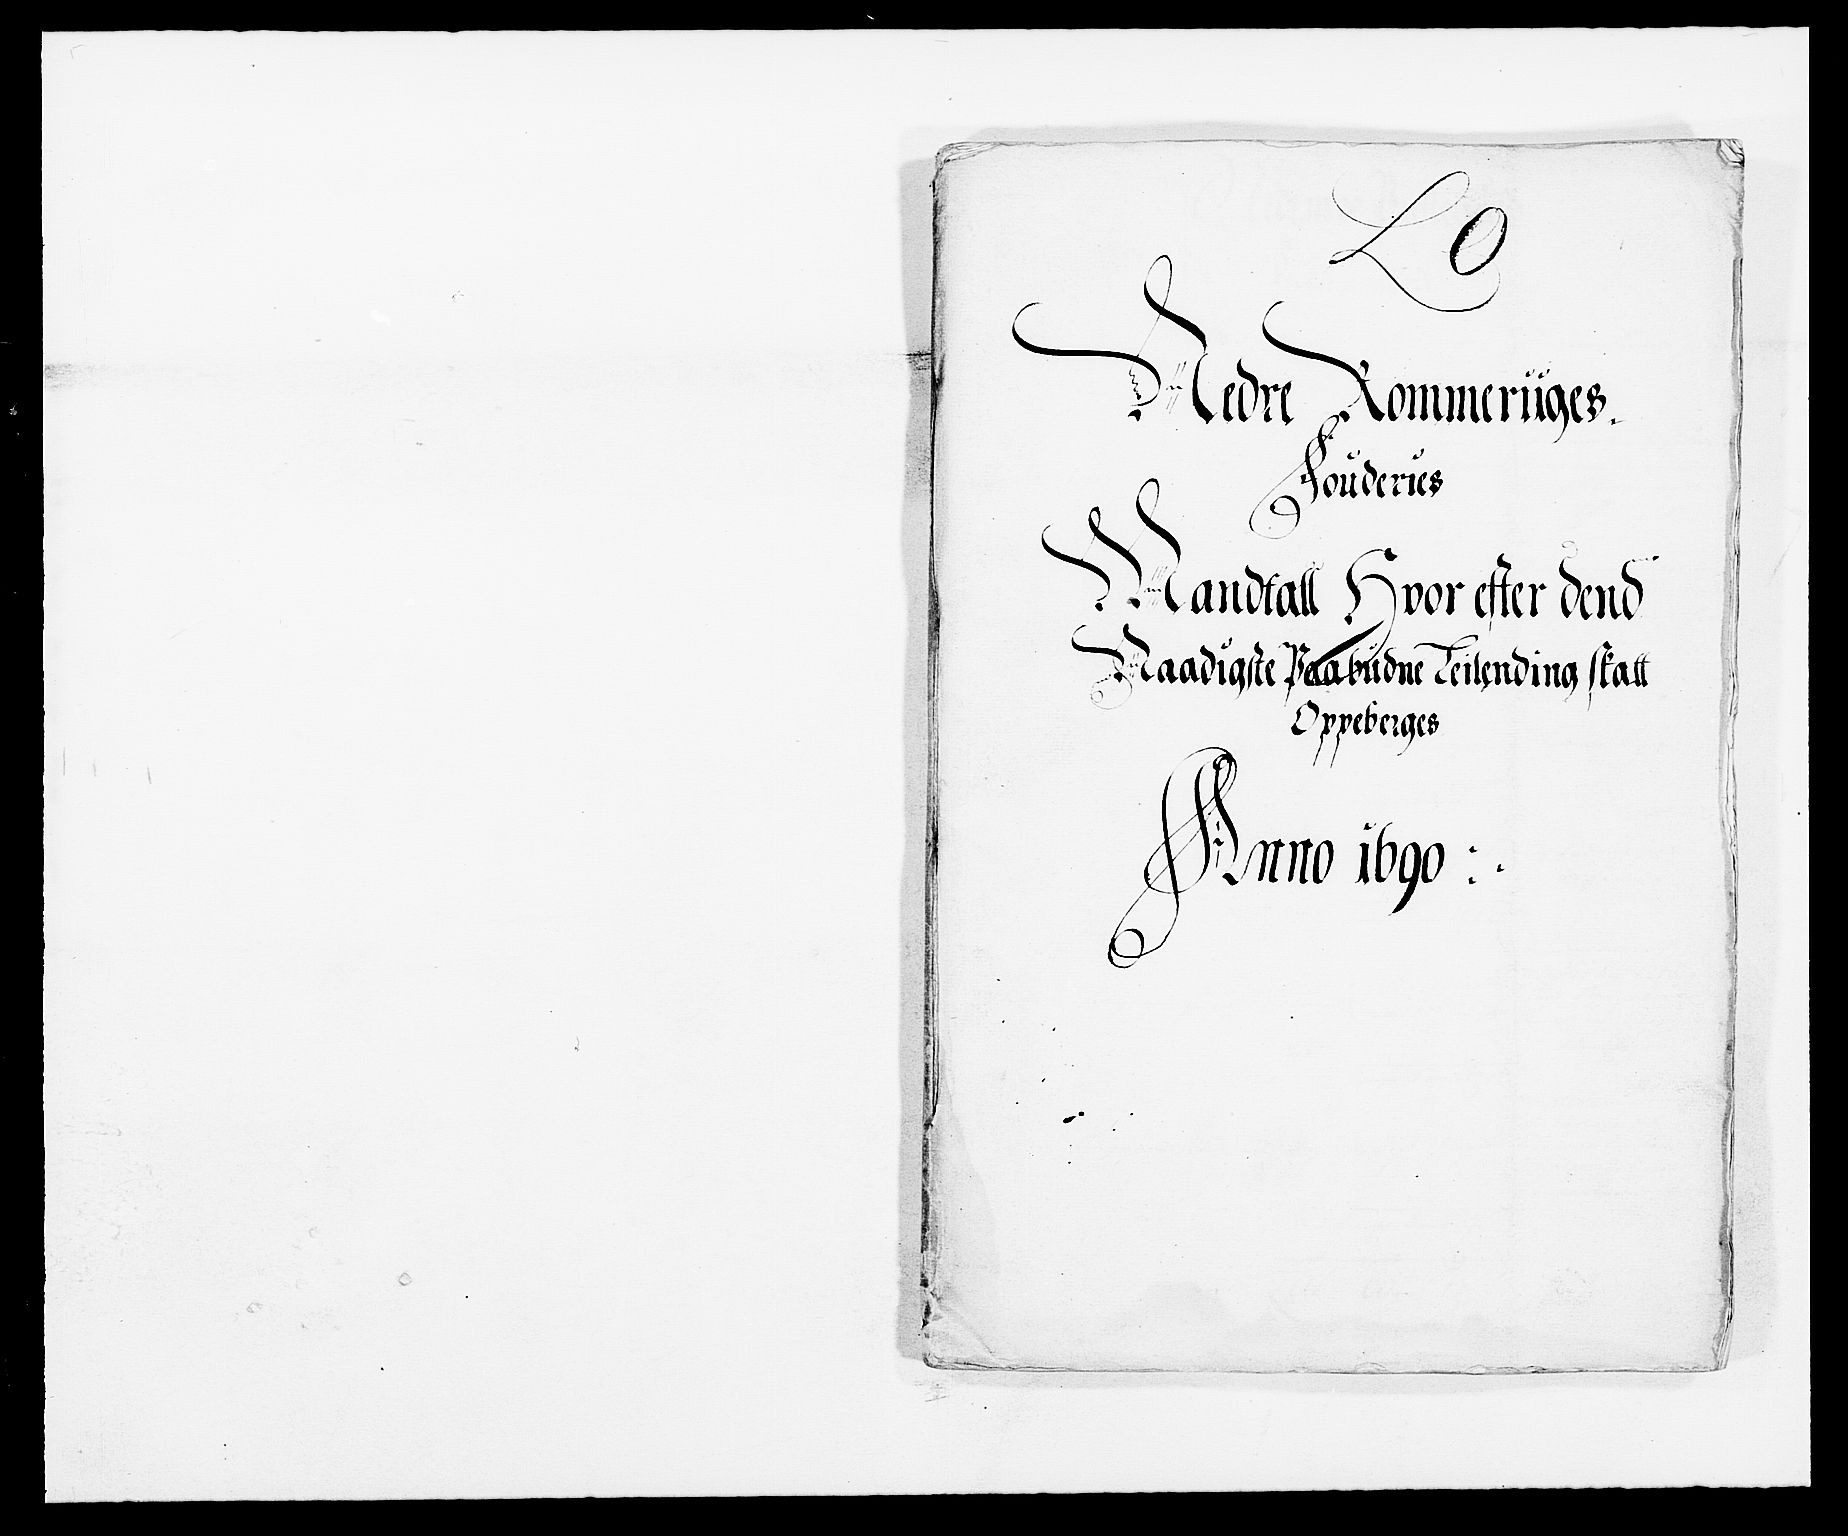 L O
Nedre Rommerüges.
Foŭderies
Mandtall Hvor efter dend
Naadigste Paabŭdne Leilending skatt
Oppeberges
Anno 1690 :.